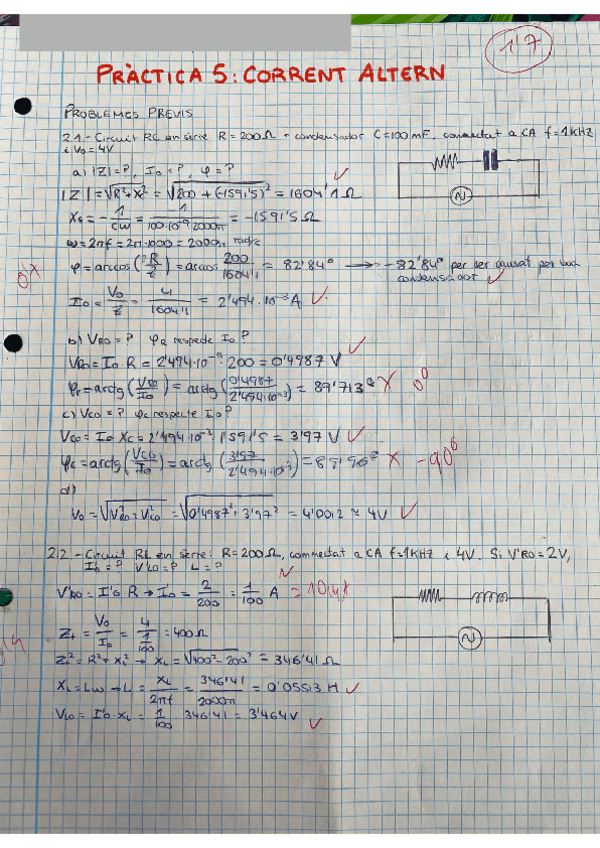 1'7
PRÀCTICA 5: CORRENT ALTERN
PROBLEMES PREVIS
2.1- Circuit RC en sèrie R=200Ω + condensador C=100mF, connectat a CA f=1KHz
i V0=4V
a) |Z|=?, I0=?, φ=?
|Z|=√R²+X² = √200+(-1591'5)² = 1604'1Ω
Xc = -1/Cω = 1/100·10⁻⁹·2000π = -1591'5 Ω
ω=2πf=2π·1000=2000π rad/s
φ=arccos(R/Z)=arccos 200/1604'1 = 82'84° → -82'84° per ser causat per un
condensador
0'X
I0 = V0/Z = 4/1604'1 = 2'494·10⁻³A
b) VR0=? φR respecte I0?
VR0=I0·R = 2'494·10⁻³·200=0'4987 V
φr=arctg(VR0/I0)=arctg(0'4987/2'494·10⁻³)=89'713° X 0°
c) VC0=? φc respecte I0?
VC0=I0 Xc=2'494·10⁻³ 1591'5=3'97 V
φc=arctg(VC0/I0)=arctg(3'97/2'494·10⁻³)=89'96° X -90°
d)
V0=√V²R0+V²C0=√0'4987²+3'97² = 4'0012≈4V
2.2- Circuit RL en sèrie: R=200Ω, connectat a CA f=1KHz i 4V. Si V'R0=2V,
I'0=? V'L0=? L=?
V'R0=I'0 R → I0 = 2/200 = 1/100 A = 10mA
Zt = V0/I0 = 4/1/100 = 400Ω
Zt²=R²+XL² → XL=√400²-200² = 346'41Ω
XL=Lω → L = XL/2πf = 346'41/2000π = 0'05513 H
VL0=I'0·XL = 1/100 346'41 = 3'464V